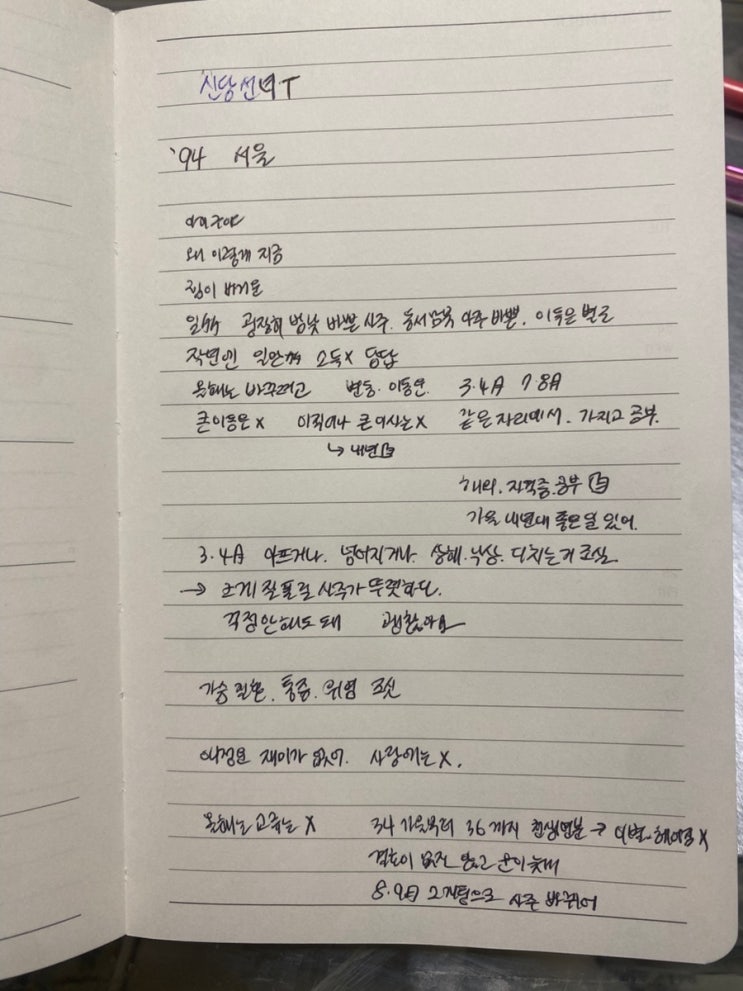 신당선녀T
'94 서울
아이구야
왜 이렇게 지금
짐이 버거운
일복 굉장히 밤낮 바쁜 사주. 동서남북 아주 바쁜. 이득은 별로
작년엔 일한게 소득x 답답
올해는 바꾸려고 변동. 이동연. 3.4月 7.8月
큰이동은 x 이직이나 큰이사는 x 같은자리에서. 가지고 공부.
↳ 내년
해외. 자격증.공부
가을 내년내 좋은일 있어.
3.4月 아프거나. 넘어지거나. 상해.낙상. 다치는거 조심
→ 크게 잘풀릴 사주가 뚜렷하다.
걱정안해도 돼 괜찮아요
가슴 질환. 통증. 위염 조심
애정운 재미가 없어. 사랑에는 x.
올해는 교류는 x 34 가을부터 36까지 천생연분 → 이별.헤어짐 x
결혼이 없진 않고 운이 늦게
8.9月 2기점으로 사주 바뀌어